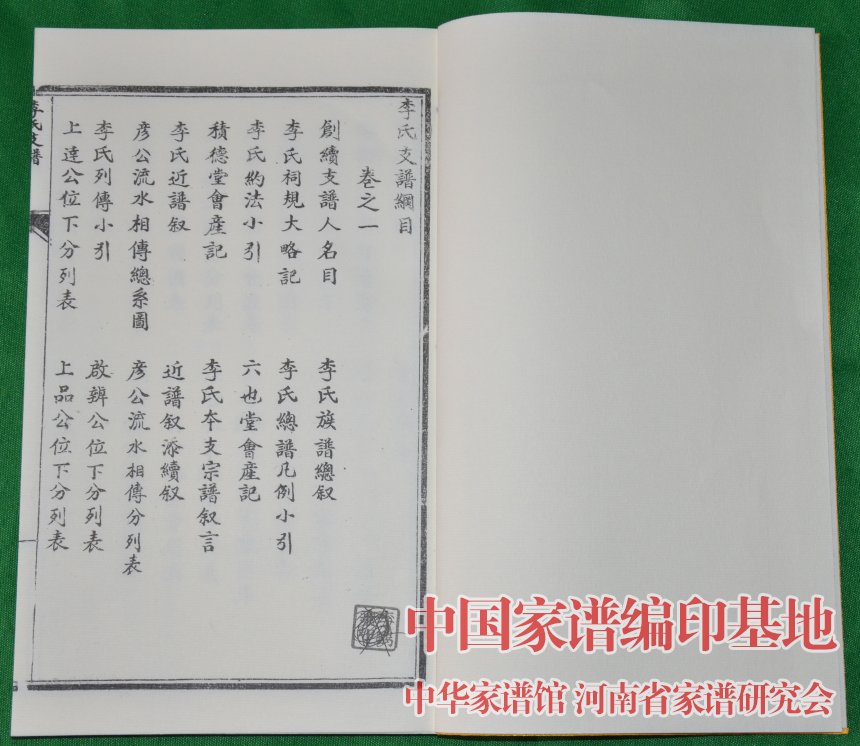 李氏支譜綱目
卷之一
創續支譜人名目
李氏族譜總叙
李氏祠規大略記
李氏總譜凡例小引
李氏約法小引
六也堂會產記
積德堂會產記
李氏本支宗譜叙言
李氏近譜叙
近譜叙添續叙
彦公流水相傳總系圖
彦公流水相傳分列表
李氏列傳小引
啟辨公位下分列表
上達公位下分列表
上品公位下分列表
李氏支譜
中国家谱编印基地
中华家谱馆 河南省家谱研究会